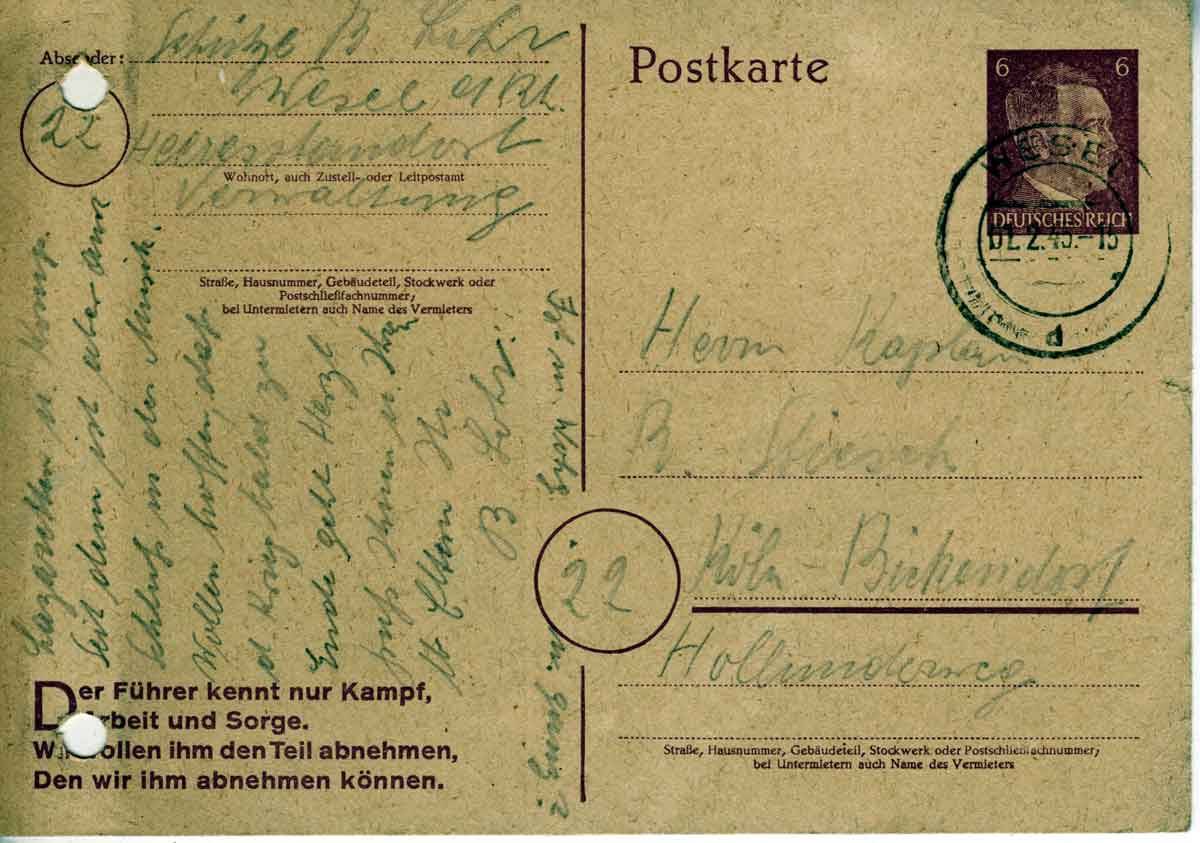 Absender:
Schütze B Lohr
Wesel
22
Heeresstandort
Wohnort, auch Zustell- oder Leitpostamt
Verwaltung
Straße, Hausnummer, Gebäudeteil, Stockwerk oder
Postschließfachnummer;
bei Untermietern auch Name des Vermieters
Lazaretten u.
Seit dem ist aber auch
Schluß in der Musik.
Wollen hoffen, daß
d Krieg bald zu
Ende geht
Gruß Ihnen u. Ihren
Eltern Ihr
B Lohr.
Postkarte
6 6
DEUTSCHES REICH
WESEL
2.45.-15
d
Herrn Kaplan
B.
22
Köln-Bickendorf
Hollunderweg
Straße, Hausnummer, Gebäudeteil, Stockwerk oder Postschließfachnummer;
bei Untermietern auch Name des Vermieters
Der Führer kennt nur Kampf,
Arbeit und Sorge.
Wir wollen ihm den Teil abnehmen,
Den wir ihm abnehmen können.